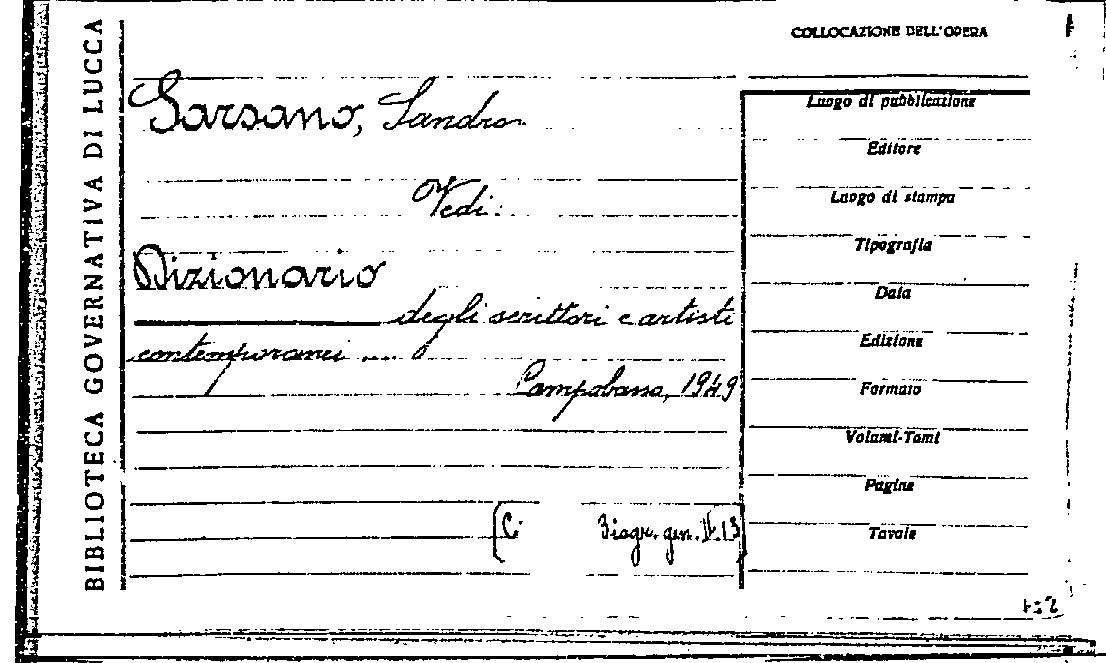 BIBLIOTECA GOVERNATIVA DI LUCCA
COLLOCAZIONE DELL'OPERA
Sarsano, Sandro
Vedi:
Dizionario
degli scrittori e artisti
contemporanei ....
Campobasso, 1949
(C. Biogr. gen. II. 13)
Luogo di pubblicazione
Editore
Luogo di stampa
Tipografia
Data
Edizione
Formato
Volumi-Tomi
Pagine
Tavole